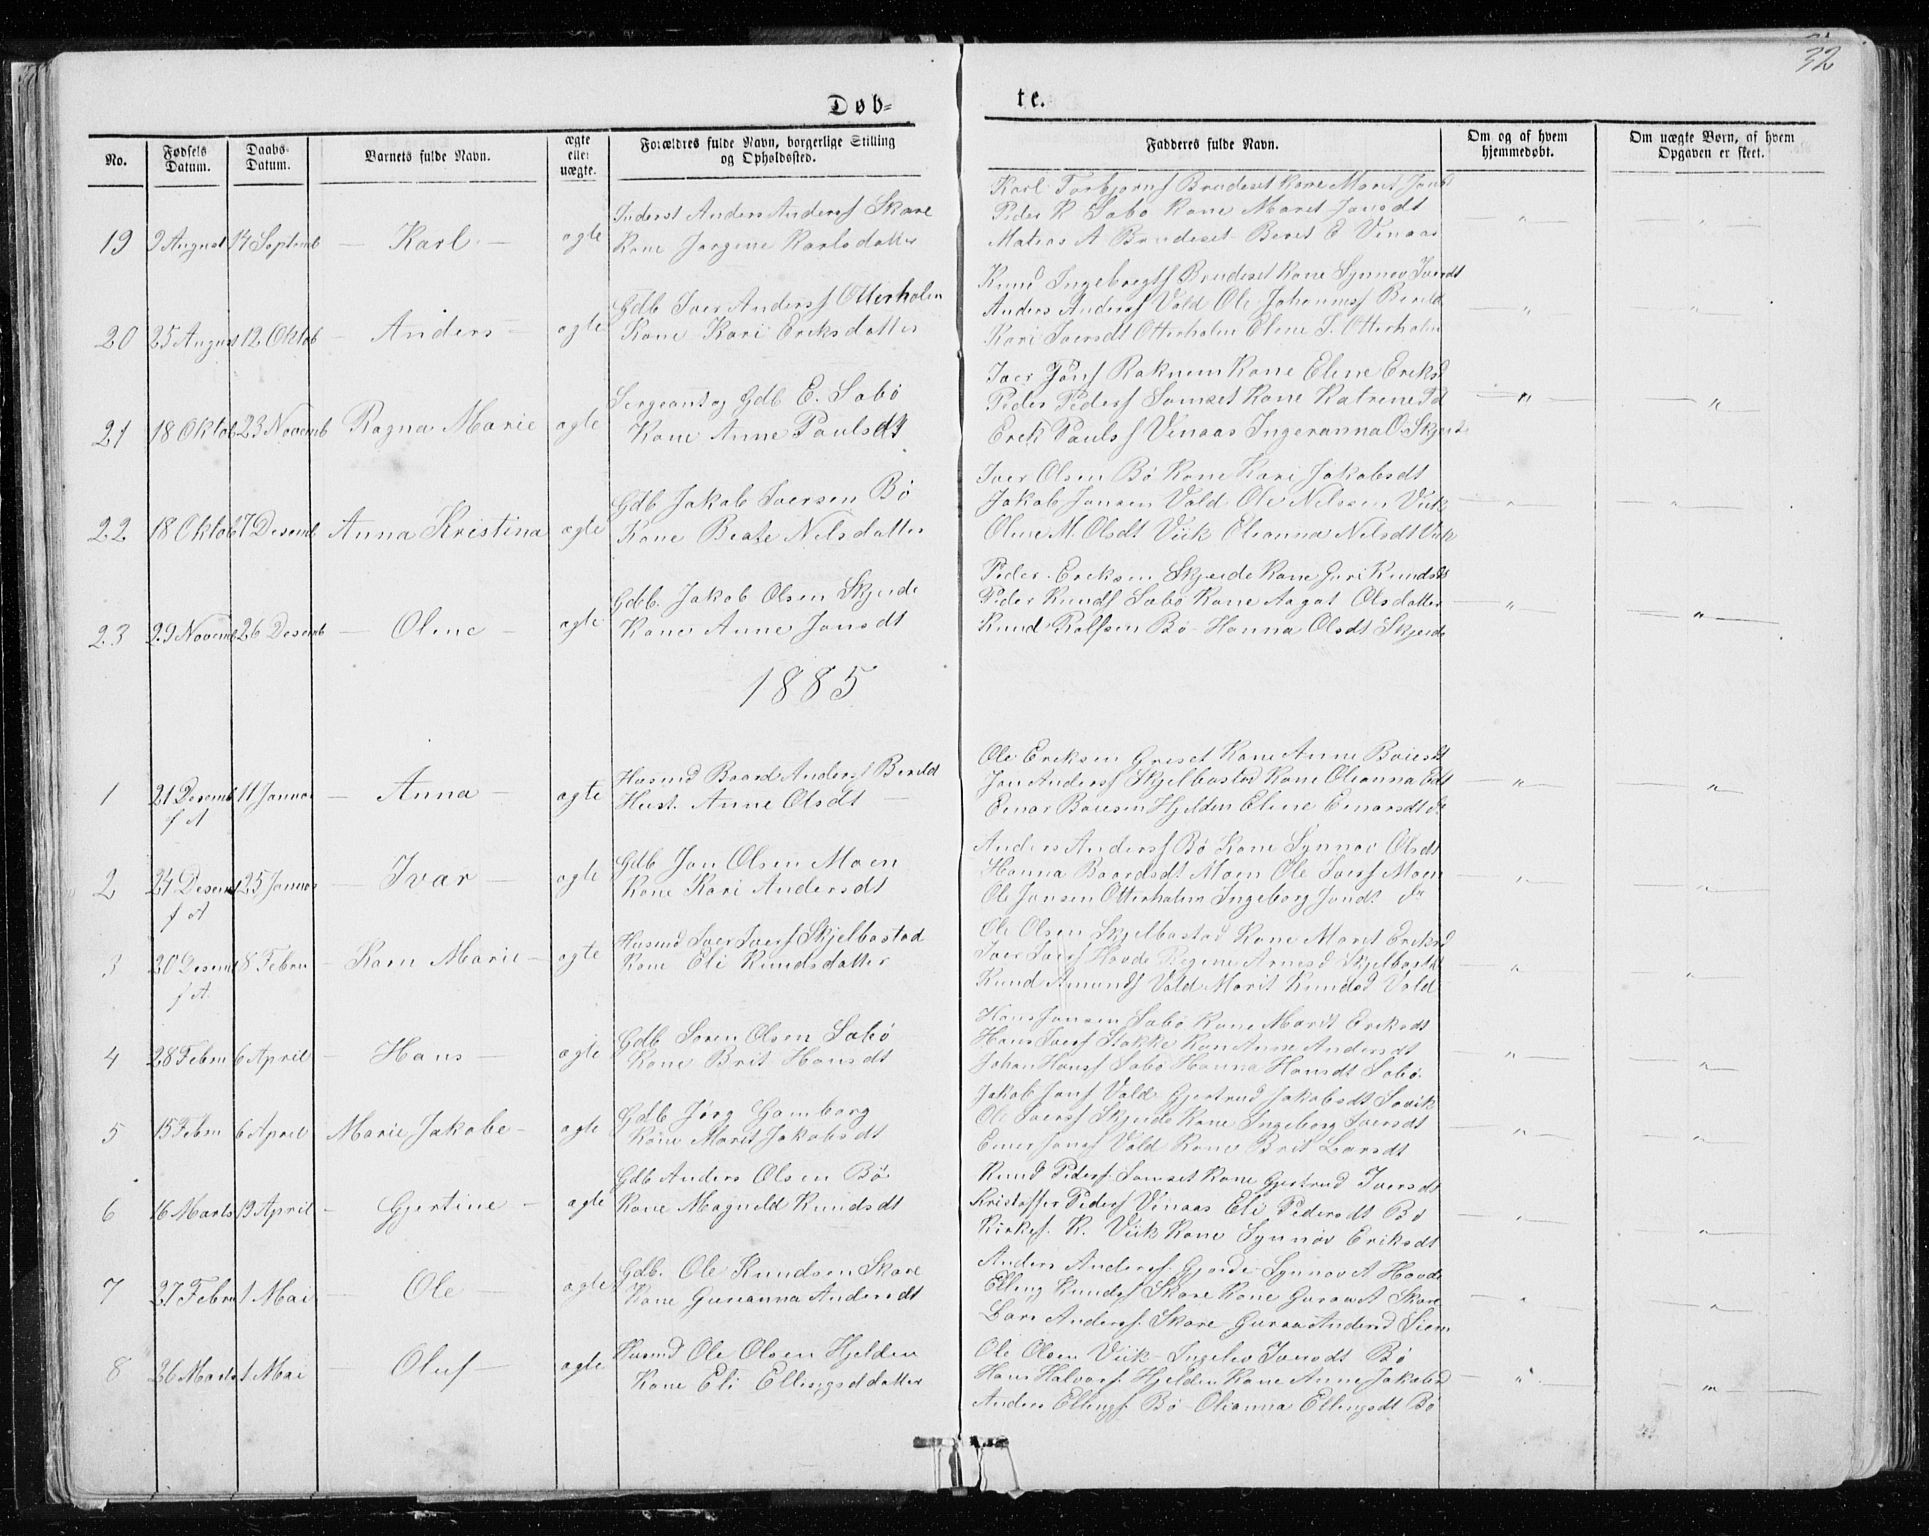 32
Døb=
te.
No.
Fødsels Datum.
Daabs Datum.
Barnets fulde Navn.
ægte eller uægte.
Forældres fulde Navn, borgerlige Stilling og Opholdssted.
Fadderes fulde Navn.
Om og af hvem hjemmedøbt.
Om uægte Børn, af hvem Opgaven er skeet.
19 9 August 14 Septemb Karl ægte
Inderst Anders Andersf Skare
Kone Jørgine Karlsdatter
Karl Torbjørnf Brudeset Kone Marit Jonsd
Peder K Sabø Kone Maret Jonsdt
Matias A Brudeset Beret E Vinaas
20 25 August 12 Oktob Anders ægte
Gdb Iver Andersf Otterholm
Kone Kari Eriksdatter
Knud Ingebregtf Brudeset Kone Synnøv Iversdt
Anders Andersf Vold Ole Johannesf Berild
Kari Iversdt Otterholm Eline I. Otterholm
21 18 Oktob 23 Novemb Ragna Marie ægte
Sergeant og Gdb E. Sabø
Kone Anne Paulsdt
Iver Jonsf Raknem Kone Eline Eriksd
Peder Pedersf Somset Kone Katrene Pd
Erik Paulsf Vinaas Ingeranna O. Skjerde
22 18 Oktob 7 Desemb Anna Kristina ægte
Gdb Jakob Iversen Bø
Kone Beate Nilsdatter
Iver Olsen Bø Kone Kari Jakobsdt
Jakob Jonsen Vold Ole Nilssen Viik
Oline M. Olsdt Viik Elianna Nilsdt Viik
23 29 Novemb 26 Desemb Oline ægte
Gdb. Jakob Olsen Skjerde
Kone Anne Jonsdt
Peder Eriksen Skjerde Kone Guri Knudsdt
Peder Knudsf Sabø Kone Aagot Olsdatter
Knud Rolfsen Bø Hanna Olsdt Skjerde
1885
1 21 Desemb 11 Januar Anna ægte
f A
Husmd Baard Andersf Berild
Hust. Anne Olsdt
Ole Eriksen Griset Kone Anne Boiesdt
Jon Andersf Skjelbostad Kone Olianna Edt
Einar Boiesen Hjelden Eline Einarsdt do
2 24 Desemb 25 Januar Ivar ægte
f A
Gdb Jon Olsen Moen
Kone Kari Andersdt
Anders Andersf Bø Kone Synnøv Olsdt
Hanna Baardsdt Moen Ole Iversf Moen
Ole Jonsen Otterholm Ingeborg Jonsdt do
3 20 Desemb 8 Febru Karn Marie ægte
f A.
Husmd Iver Iversf Skjelbostad
Kone Eli Knudsdatter
Ole Olsen Skjelbostad Kone Maret Eriksd
Iver Iversf Hovde Regine Arnesd Skjelbostad
Knud Amundsf Vold Marit Knudsd Vold
4 28 Febru 6 April Hans ægte
Gdb Søren Olsen Sabø
Kone Brit Hansdt
Hans Jonsen Sabø Kone Marit Eriksdt
Hans Iversf Stokke Kone Anne Andersdt
Johan Hansf Sabø Hanna Hansdt Sabø
5 15 Febru 6 April Marie Jakobe ægte
Gdb Jørg Gamborg
Kone Maret Jakobsdt
Jakob Jonsf Vold Gjertrud Jakobsdt Sovik
Ole Iversf Skjerde Kone Ingeborg Iversdt
Einer Jonsf Vold Kone Brit Larsdt
6 16 Marts 19 April Gjertine ægte
Gdb Anders Olsen Bø
Kone Magnild Knudsdt
Knud Pedersf Somset Kone Gjertrud Iversdt
Kristoffer Pedersf Vinaas Eli Pedersdt Bø
Kirkes. K. Viik Kone Synnøv Eriksdt
7 27 Febru 1 Mai Ole ægte
Gdb. Ole Knudsen Skare
Kone Gurianna Andersdt
Anders Andersf Gjerde Synnøv A Hovde
Elling Knudsf Skare Kone Guraa A Skare
Lars Andersf. Skare Guraa Andersd Siem
8 26 Marts 1 Mai Oluf ægte
Husmd Ole Olsen Hjelden
Kone Eli Ellingsddatter
Ole Olsen Viik Ingelev Jonsdt Bø
Hans Halvorsf Hjelden Kone Anne Jakobsd
Anders Ellingsf. Bø Olianna Ellingsdt Bø